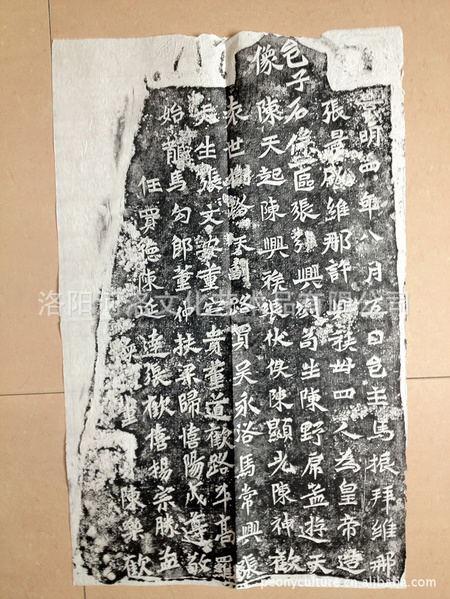 明四年八月五日邑主馬振拜維那
張成維那許興族卅四人為皇帝造
邑子石像區張引興苟生陳野虎孟遊天
像陳天起陳興族張伏俟陳顯光陳神歡
袁世路天副路買吳永洛馬常興張
天生張文安董定貴董道歡路平高羅
始龍馬勾郎董仲扶梁歸憘陽成遵敬
任買德陳延達張歡憘楊宗勝孟
董陳樂歡
洛阳文化品有限公司
peonyculture